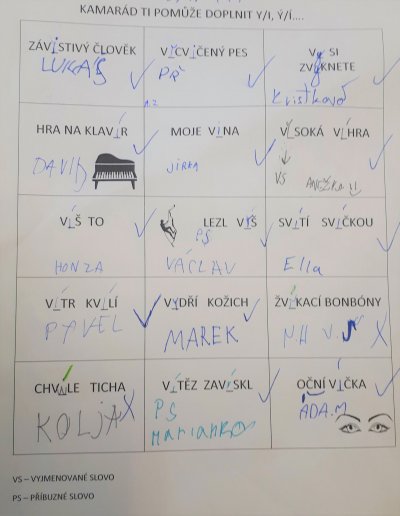 KAMARÁD TI POMŮŽE DOPLNIT Y/I, Ý/Í....
ZÁVISTIVÝ ČLOVĚK
LUKÁŠ
VYCVIČENÝ PES
PŘ
VY SI
ZVYKNETE
HRA NA KLAVÍR
DAVID
MOJE VINA
JIRKA
VYSOKÁ VÝHRA
VS
VÍŠ TO
HONZA
LEZL VÝŠ
PS
VÁCLAV
SVÍTÍ SVÍČKOU
Ella
VÍTR KVÍLÍ
PAVEL
VYDŘÍ KOŽICH
MAREK
ŽVÝKACÍ BONBÓNY
N.H V.
CHVÍLE TICHA
KOLJA
VÍTĚZ ZAVÝSKL
PS
OČNÍ VÍČKA
ADA.M
VS – VYJMENOVANÉ SLOVO
PS – PŘÍBUZNÉ SLOVO